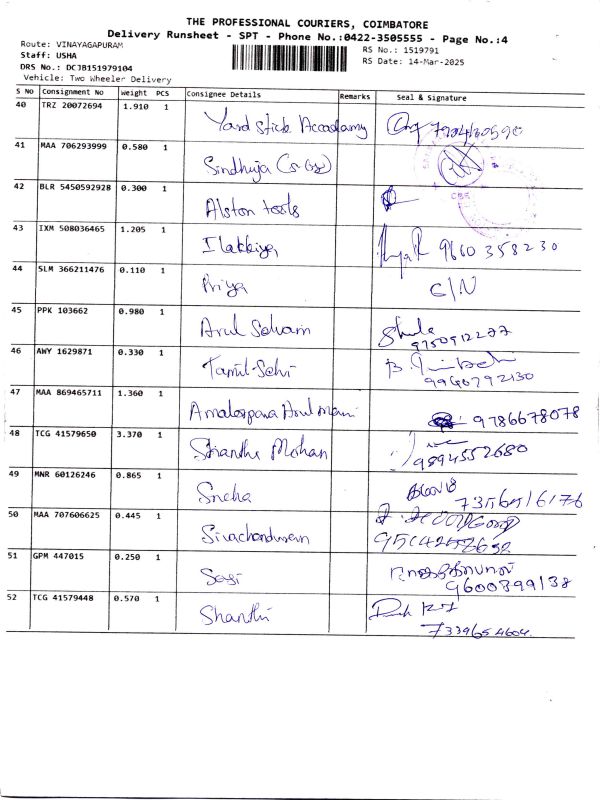 THE PROFESSIONAL COURIERS, COIMBATORE
Delivery Runsheet - SPT - Phone No.:0422-3505555 - Page No.:4
Route: VINAYAGAPURAM RS No.: 1519791
Staff: USHA RS Date: 14-Mar-2025
DRS No.: DCJB151979104
Vehicle: Two Wheeler Delivery
S No Consignment No Weight PCS Consignee Details Remarks Seal & Signature
40 TRZ 20072694 1.910 1
Yard stick Accadamy
41 MAA 706293999 0.580 1
Sindhuja
CBE
42 BLR 5450592928 0.300 1
Alston tools
43 IXM 508036465 1.205 1
Ilakkiya 9660 358230
44 SLM 366211476 0.110 1
Priya C/N
45 PPK 103662 0.980 1
Arul Selvam
9750912277
46 AWY 1629871 0.330 1
Tamil Selvi
9940792130
47 MAA 869465711 1.360 1
9786678078
48 TCG 41579650 3.370 1
Mohan 9894552680
49 MNR 60126246 0.865 1
Sneha
50 MAA 707606625 0.445 1
51 GPM 447015 0.250 1
Sasi 9600399138
52 TCG 41579448 0.570 1
Shanthi
7339654604.